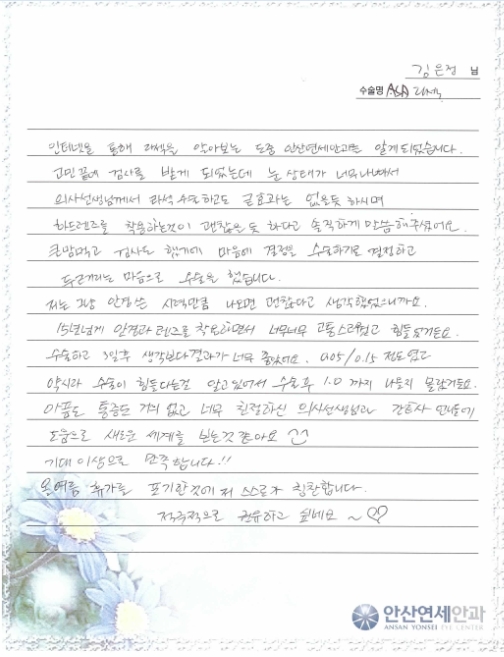 김은정 님
수술명 ASA 라섹
인터넷을 통해 라섹을 알아보는 도중 안산연세안과를 알게되었습니다.
고민끝에 검사를 받게 되었는데 눈 상태가 너무나빠서
의사선생님께서 라섹 수술하고도 큰효과는 없을듯 하시며
하드렌즈를 착용하는것이 괜찮을 듯 하다고 솔직하게 말씀해주셨어요.
큰맘먹고 검사도 했기에 마음에 결정을 수술하기로 결정하고
두근거리는 마음으로 수술을 했습니다.
저는 그냥 안경쓴 시력만큼 나오면 괜찮다고 생각했었으니까요.
15년넘게 안경과 렌즈를 착용하면서 너무너무 고통스러웠고 힘들었거든요.
수술하고 3일후 생각보다 결과가 너무 좋았어요. 0.05/0.15 정도였고
약시라 수술이 힘들다는걸 알고 있어서 수술후 1.0 까지 나올지 몰랐거든요.
아픔도 통증도 거의 없고 너무 친절하신 의사선생님과 간호사 언니들에
도움으로 새로운 세계를 보는것 같아요
기대 이상으로 만족합니다!!
올여름 휴가를 포기한것에 저 스스로가 칭찬합니다.
적극적으로 권유하고 싶네요 ~ ♡♡
안산연세안과
ANSAN YONSEI EYE CENTER